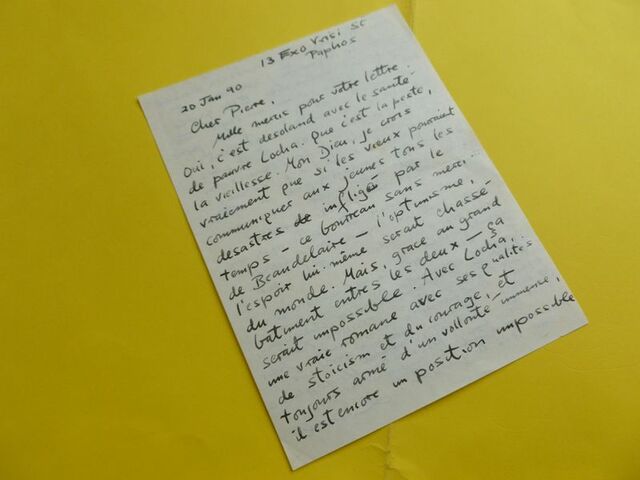 13 Exo Vrisi St
Paphos
20 Jan 90
Cher Pierre,
Mille mercis pour votre lettre.
Oui, c'est desoland avec le santé
de pauvre Locha. Que c'est la peste,
la vieillesse. Mon Dieu, je crois
vraiment que si les vieux pouvaient
communiquer aux jeunes tous les
desastres infligés par le
temps - ce bourreau sans merci
de Beaudelaire - l'optimisme,
l'espoir lui-même serait chassé
du monde. Mais, grace au grand
batiment entres les deux - ça
serait impossible. Avec Locha,
une vraie romane avec ses qualités
de stoicism et du courage, et
toujours armé d'un vollonté immense,
il est encore un position impossible